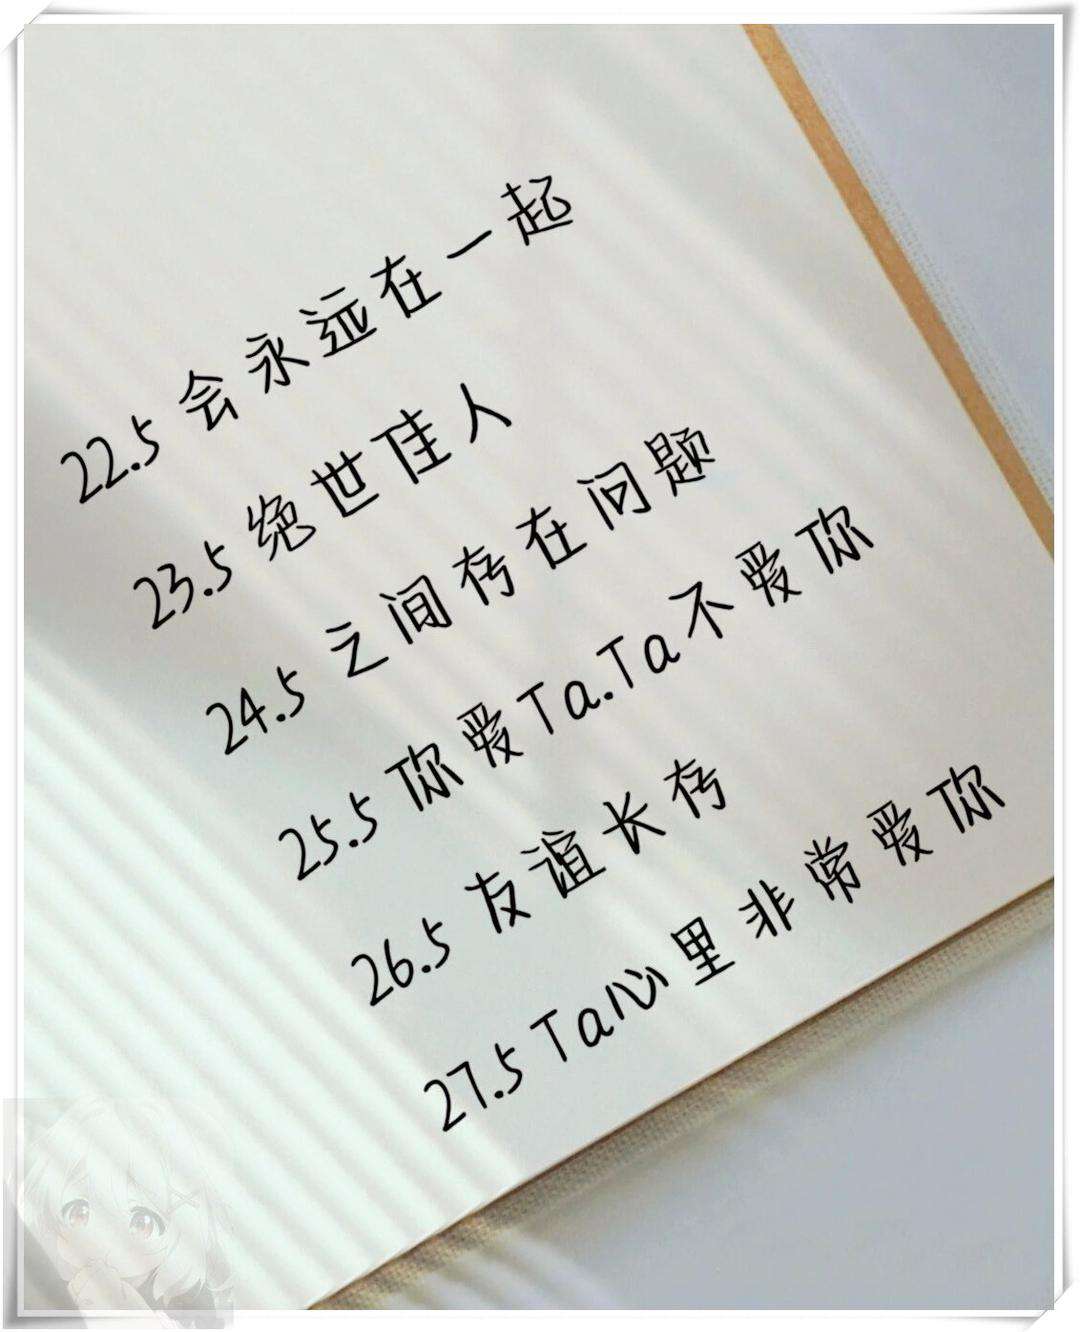 22.5 会永远在一起
23.5 绝世佳人
24.5 之间存在问题
25.5 你爱Ta.Ta不爱你
26.5 友谊长存
27.5 Ta心里非常爱你